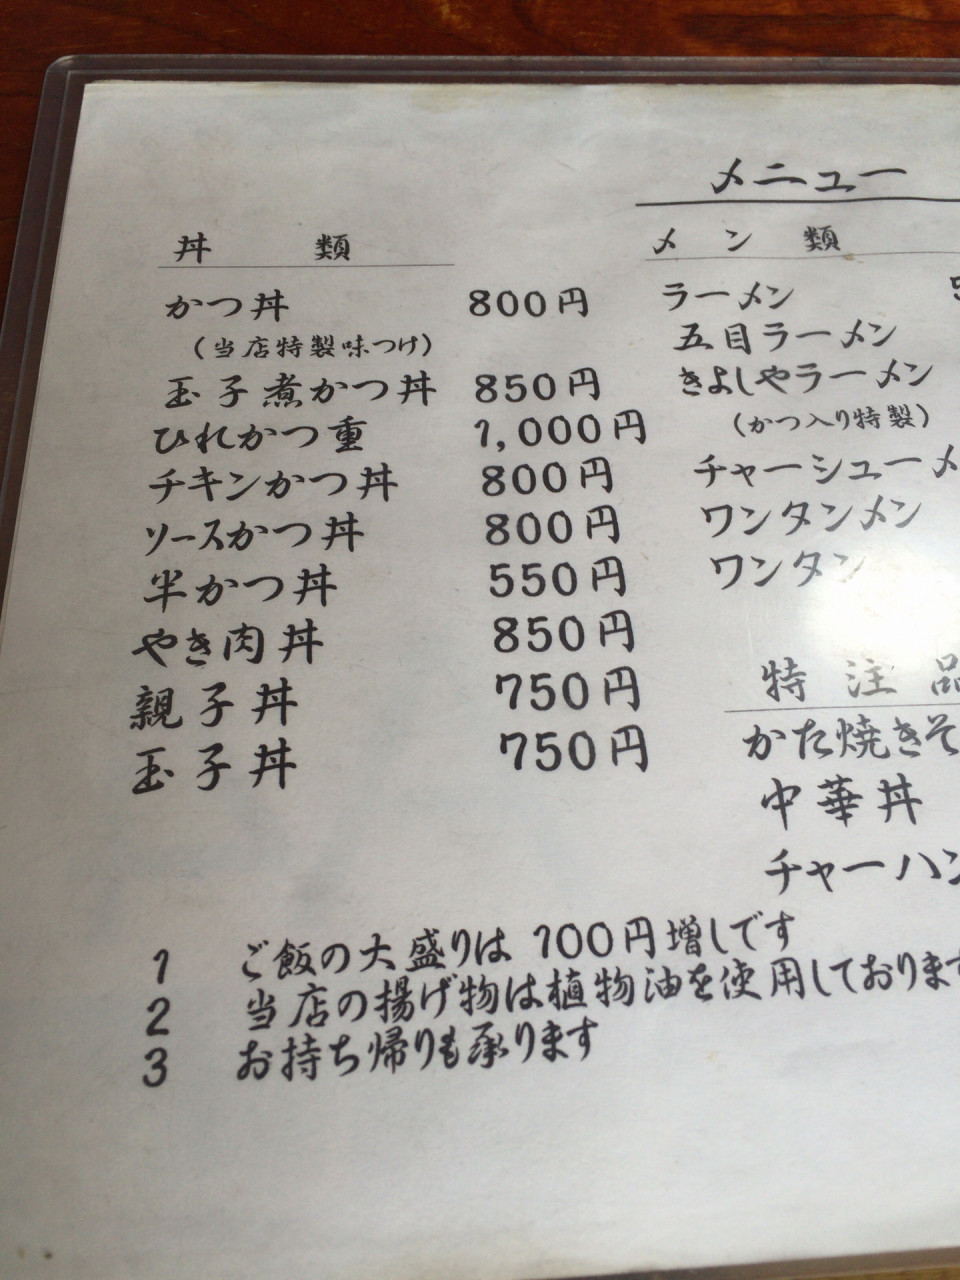 メニュー
丼 類
かつ丼 800円
(当店特製味つけ)
玉子煮かつ丼 850円
ひれかつ重 1,000円
チキンかつ丼 800円
ソースかつ丼 800円
半かつ丼 550円
やき肉丼 850円
親子丼 750円
玉子丼 750円
メン類
ラーメン 5
五目ラーメン
きよしやラーメン
(かつ入り特製)
チャーシューメ
ワンタンメン
ワンタン
特注品
かた焼きそ
中華丼
チャーハン
1 ご飯の大盛りは 100円増しです
2 当店の揚げ物は植物油を使用しております
3 お持ち帰りも承ります